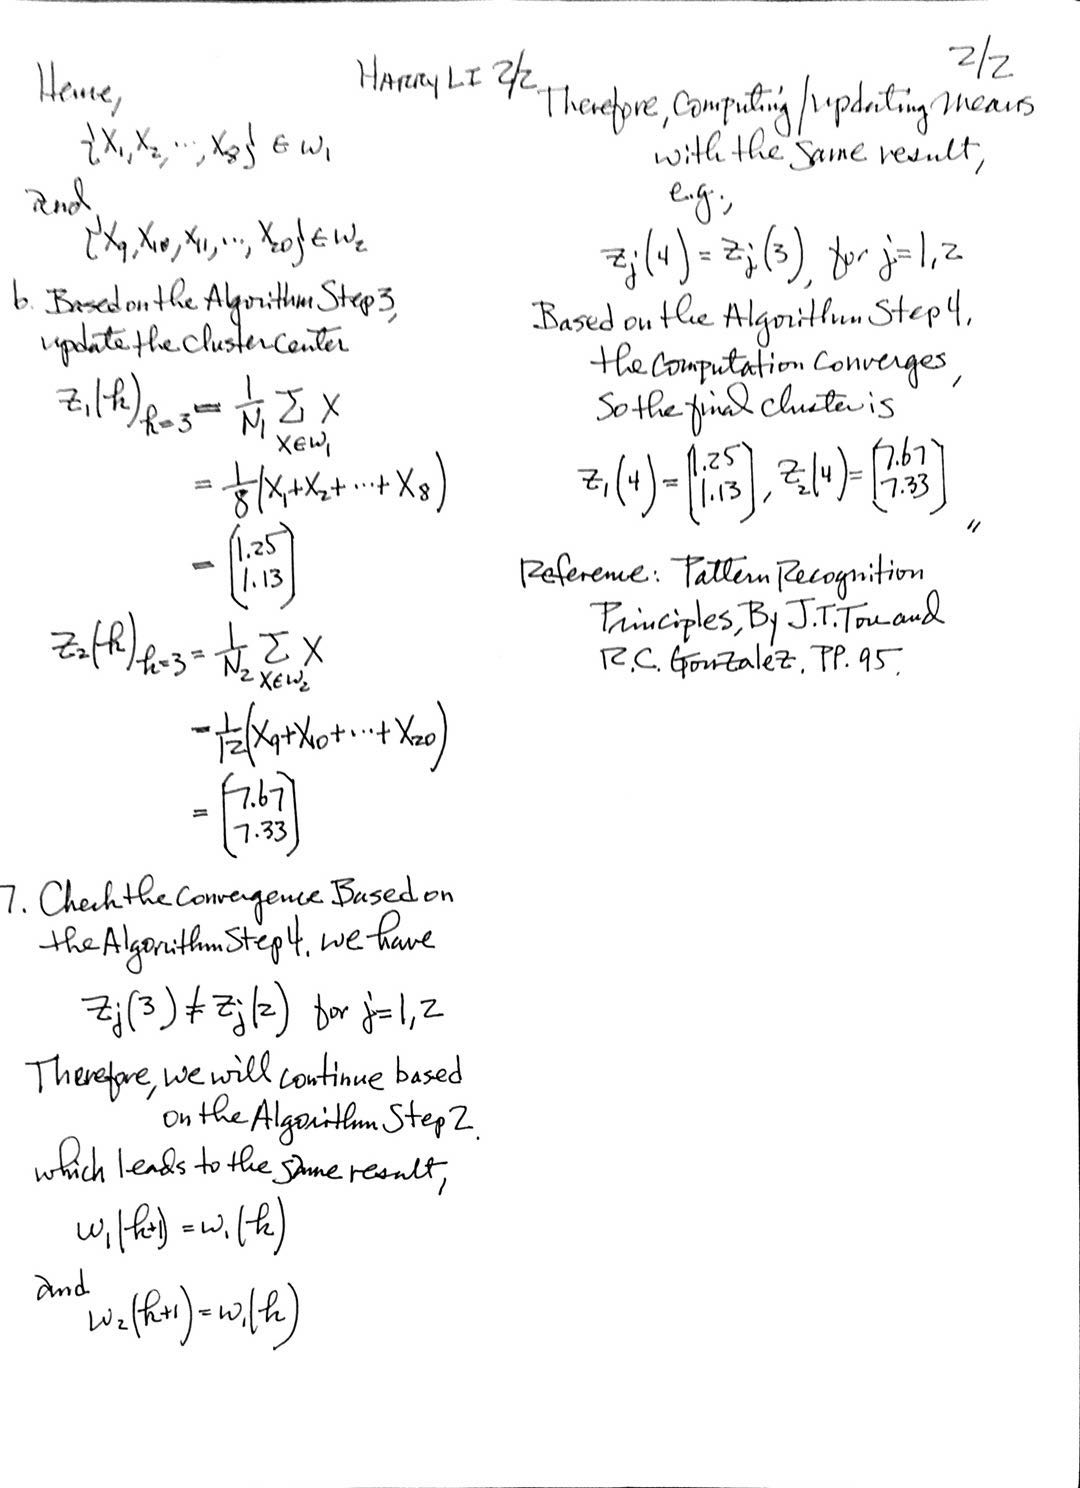 HARRY LI 2/2
2/2
Hence,
{X₁, X₂, ..., X₈} ∈ W₁
and
{X₉, X₁₀, X₁₁, ..., X₂₀} ∈ W₂
6. Based on the Algorithm Step 3,
update the cluster center
Z₁(k)|k=3 = 1/N₁ Σ X
X∈W₁
= 1/8 (X₁+X₂+ ... + X₈)
= (1.25
1.13)
Z₂(k)|k=3 = 1/N₂ Σ X
X∈W₂
= 1/12 (X₉+X₁₀+ ... + X₂₀)
= (7.67
7.33)
7. Check the Convergence Based on
the Algorithm Step 4, we have
Zⱼ(3) ≠ Zⱼ(2) for j=1,2
Therefore, we will continue based
on the Algorithm Step 2.
which leads to the same result,
W₁(k+1) = W₁(k)
and
W₂(k+1) = W₁(k)
Therefore, Computing/updating means
with the same result,
e.g.,
Zⱼ(4) = Zⱼ(3), for j=1,2
Based on the Algorithm Step 4,
the Computation Converges,
So the final cluster is
Z₁(4) = (1.25 1.13), Z₂(4) = (7.67 7.33) "
Reference: Pattern Recognition
Principles, By J.T. Tou and
R.C. Gonzalez, PP. 95.